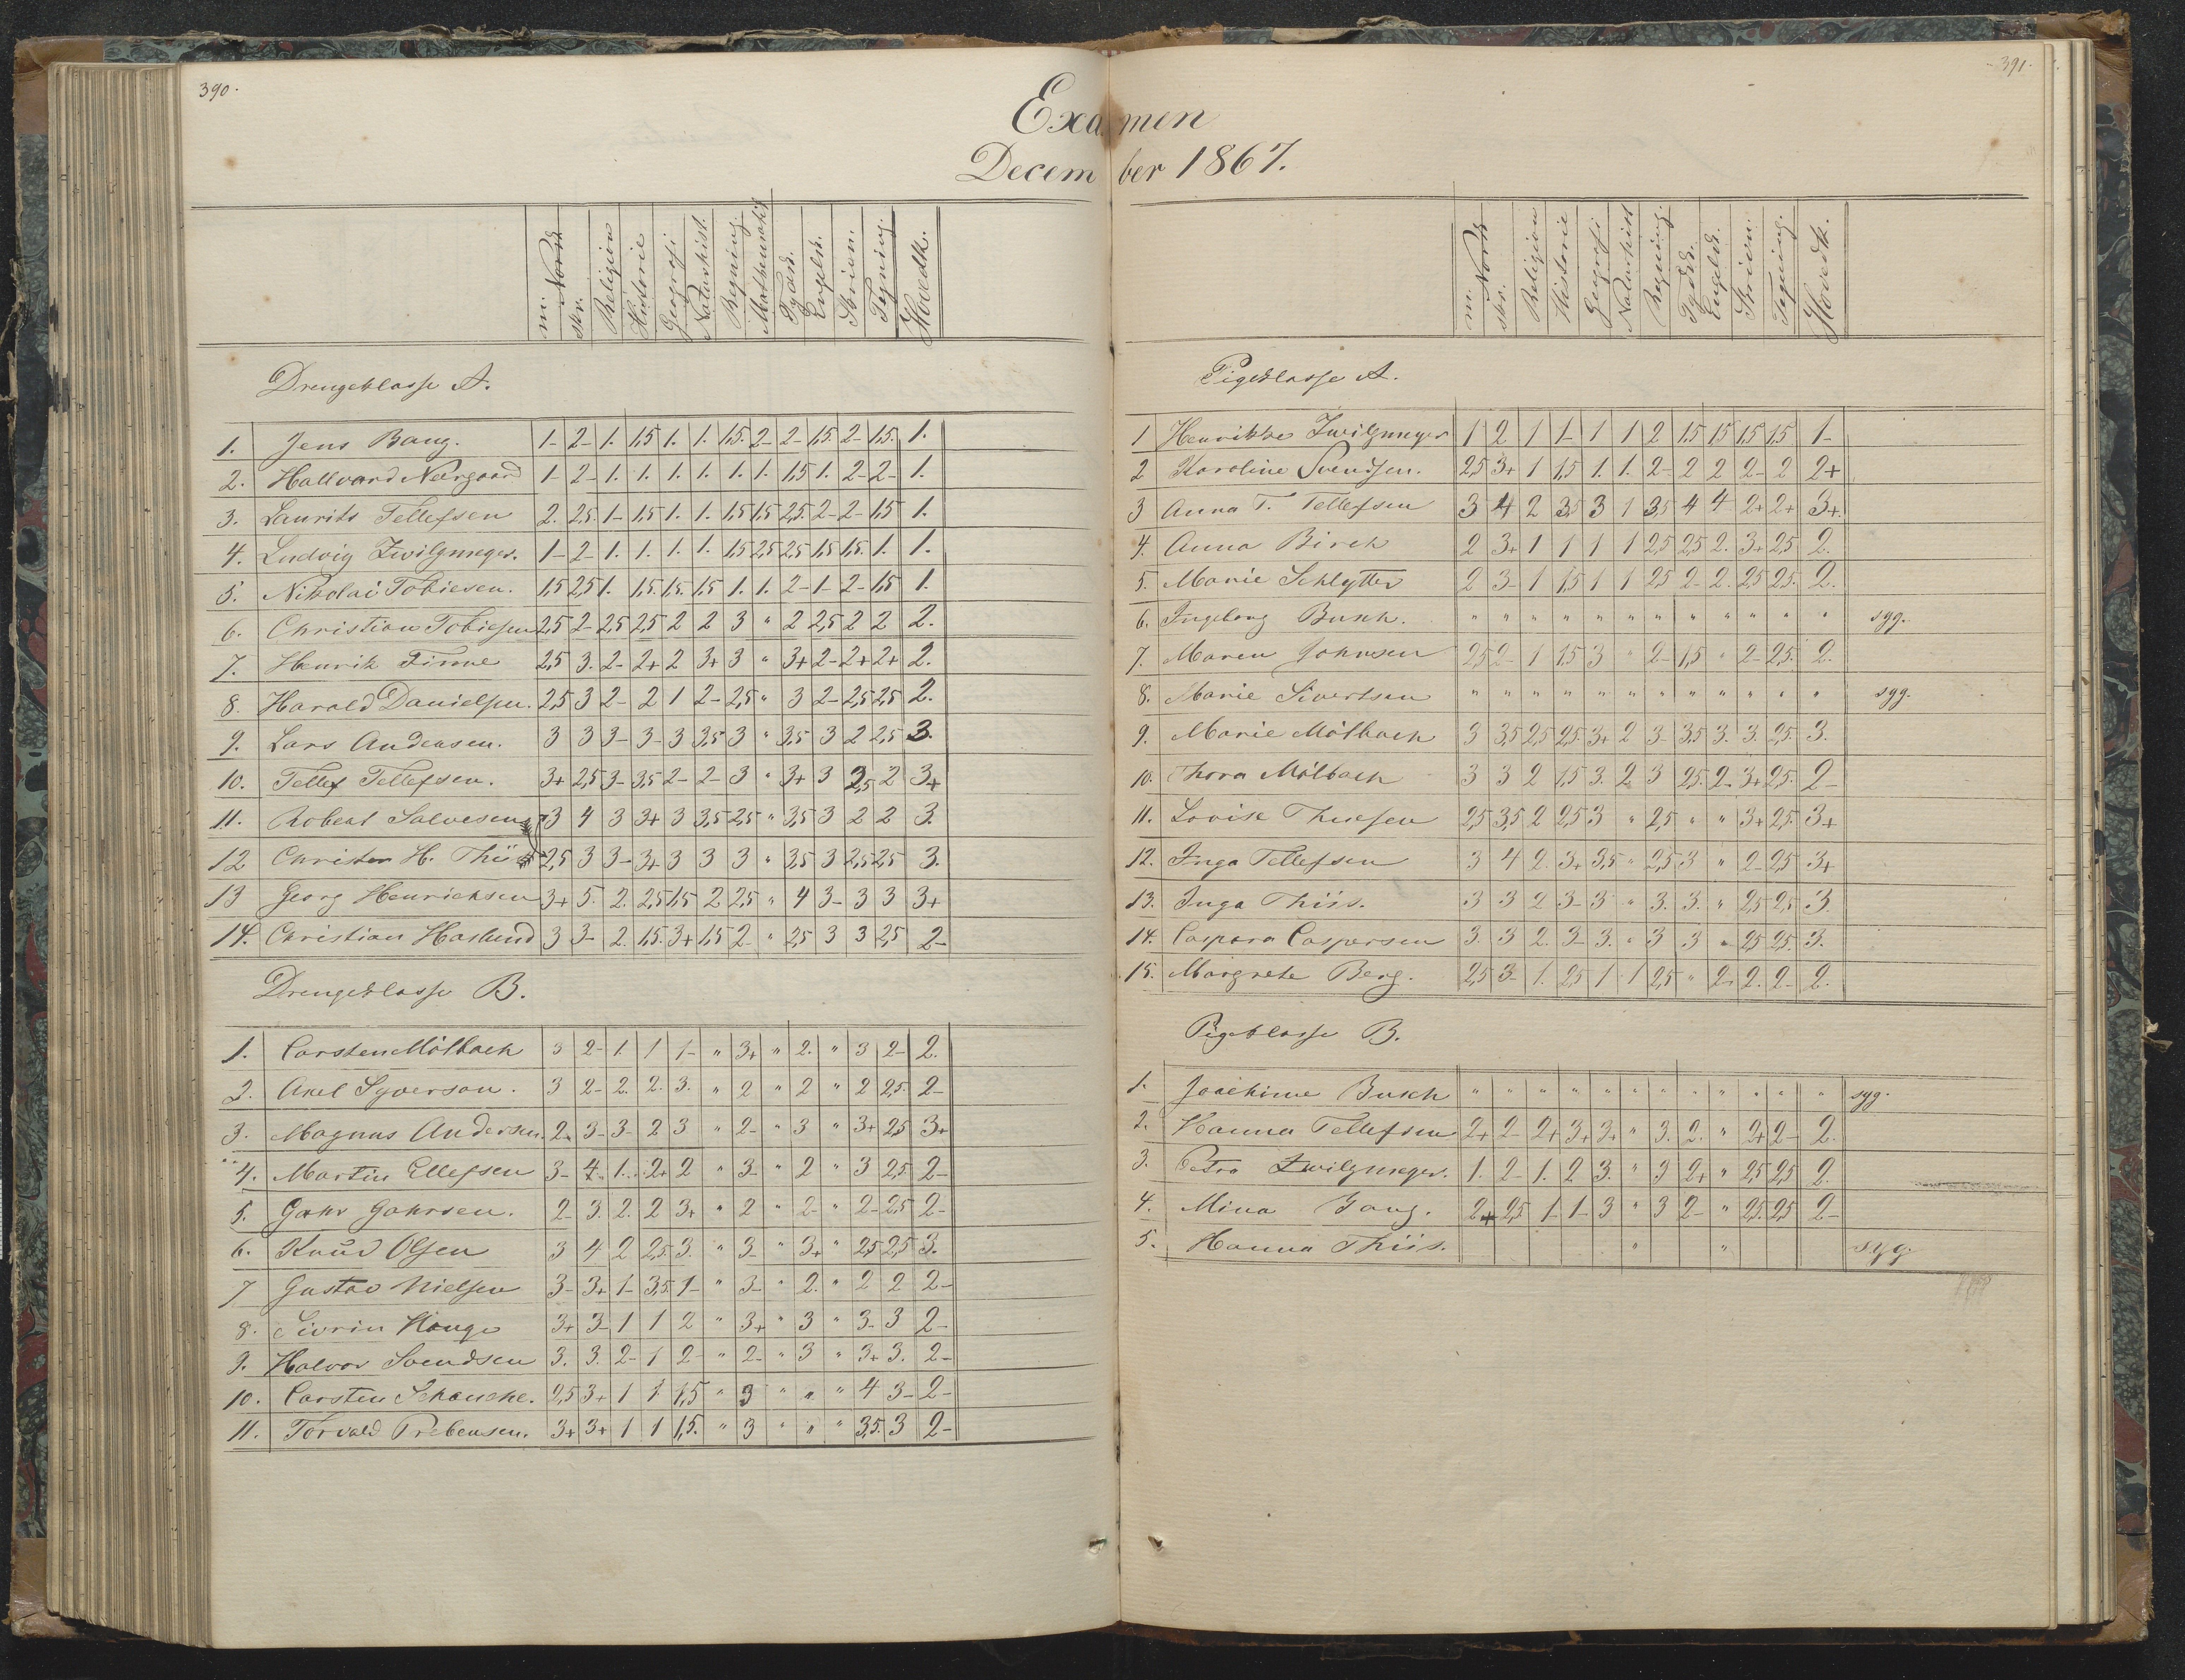 390.
391.
Examen
December 1867.
m. Norsk skr. Religion Historie Geografi Naturhist. Regning. Mathematik Tydsk. Engelsk. Skrivn. Tegning. Hovedk.
Drengeklasse A.
1. Jens Bang. 1- 2- 1. 1,5 1. 1. 1,5. 2- 2- 1,5. 2- 1,5. 1.
2. Hallvard Neergaard 1- 2- 1. 1. 1. 1. 1. 1. 1,5 1. 2- 2- 1.
3. Laurits Tellefsen 2. 2,5. 1- 1,5 1. 1. 1,5 1,5 2,5. 2- 2- 1,5 1.
4. Ludvig Zwilgmeyer. 1- 2- 1. 1. 1. 1. 1,5 2,5 2,5 1,5 1,5. 1. 1.
5. Nikolai Tobiesen. 1,5 2,5 1. 1,5. 1,5. 1,5 1. 1. 2- 1- 2- 1,5 1.
6. Christian Tobiesen 2,5 2- 2,5 2,5 2 2 3 " 2 2,5 2 2 2.
7. Henrik Finne 2,5 3. 2- 2+ 2 3+ 3 " 3+ 2- 2+ 2+ 2.
8. Harald Danielsen. 2,5 3 2- 2 1 2- 2,5 " 3 2- 2,5 2,5 2.
9. Lars Andersen. 3 3 3- 3- 3 3,5 3 " 3,5 3 2 2,5 3.
10. Tellef Tellefsen. 3+ 2,5 3- 3,5 2- 2- 3 " 3+ 3 2,5 2 3+
11. Robert Salvesen 3 4 3 3+ 3 3,5 2,5 " 3,5 3 2 2 3.
12 Christen H. Thiis 2,5 3 3- 3+ 3 3 3 " 3,5 3 2,5 2,5 3.
13 Georg Henrichsen 3+ 5. 2. 2,5 1,5 2 2,5 " 4 3- 3 3 3+
14. Christian Haslund 3 3- 2. 1,5. 3+ 1,5 2- " 2,5 3 3 2,5 2-
Drengeklasse B.
1. Carsten Mölbach 3 2- 1. 1 1- " 3+ " 2. " 3 2- 2.
2. Axel Syverson. 3 2- 2. 2. 3. " 2 " 2 " 2 2,5. 2-
3. Magnus Andersen. 2- 3- 3- 2 3 " 2- " 3 " 3+ 2,5 3+
4. Martin Ellefsen 3- 4. 1. 2+ 2 " 3- " 2 " 3 2,5 2-
5. Gahr Gahrsen. 2- 3. 2. 2 3+ " 2 " 2- " 2- 2,5 2-
6. Knud Olsen 3 4 2 2,5. 3. " 3- " 3+ " 2,5 2,5 3.
7 Gustav Nielsen 3- 3+ 1- 3,5. 1- " 3- " 2. " 2 2 2-
8. Sivrin Hauge 3+ 3- 1 1 2 " 3+ " 3 " 3- 3 2-
9. Halvor Svendsen 3. 3. 2- 1 2- " 2- " 3 " 3+ 3. 2-
10. Carsten Schanche. 2,5 3+ 1 1 1,5 " 3 " " " 4 3- 2-
11. Torvald Prebensen. 3+ 3+ 1 1 1,5. " 3 " " " 3,5. 3 2-
m. Norsk skr. Religion Historie Geografi Naturhist Regning. Tydsk. Engelsk. Skrivn. Tegning. Hovedk.
Pigeklasse A.
1 Henrikke Zwilgmeyer 1 2 1 1- 1 1 2 1,5 1,5 1,5 1,5 1-
2 Karoline Svendsen. 2,5 3+ 1 1,5 1. 1. 2- 2 2 2- 2 2+
3 Anna T. Tellefsen 3 4 2 3,5 3 1 3,5 4 4 2+ 2+ 3+.
4. Anna Birch 2 3+ 1 1 1 1 2,5 2,5 2. 3+ 2,5 2.
5. Marie Schlytter 2 3- 1 1,5 1 1 2,5 2- 2. 2,5 2,5. 2.
6. Ingeborg Busch. " " " " " " " " " " " " syg.
7. Maren Johnsen 2,5 2- 1 1,5 3 " 2- 1,5 " 2- 2,5. 2.
8. Marie Sivertsen " " " " " " " " " " " " syg.
9. Marie Mölbach 3 3,5 2,5 2,5. 3+ 2 3- 3,5 3. 3. 2,5. 3.
10. Thora Mölbach 3 3 2 1,5 3. 2 3 2,5. 2- 3+ 2,5. 2-
11. Lovise Thuesen 2,5 3,5 2 2,5 3 " 2,5 " " 3+ 2,5. 3+
12. Inga Tellefsen 3 4 2. 3+ 3,5 " 2,5 3 " 2- 2,5 3+
13. Inga Thiis. 3 3 2 3- 3 " 3. 3. " 2,5 2,5 3.
14. Caspara Caspersen 3. 3 2. 3- 3. " 3 3 " 2,5 2,5. 3.
15. Margrete Berg. 2,5 3- 1. 2,5 1 1 2,5 " 2- 2. 2- 2.
Pigeklasse B.
1. Joachime Busch " " " " " " " " " " " " syg.
2. Hanna Tellefsen 2+ 2- 2+ 3+ 3+ " 3. 2. " 2+ 2- 2.
3. Petra Zwilgmeyer. 1. 2- 1. 2 3. " 3 2+ " 2,5 2,5 2.
4. Mina Bang. 2+ 2,5. 1- 1- 3 " 3 2- " 2,5. 2,5 2-
5. Hanna Thiis. " " syg.